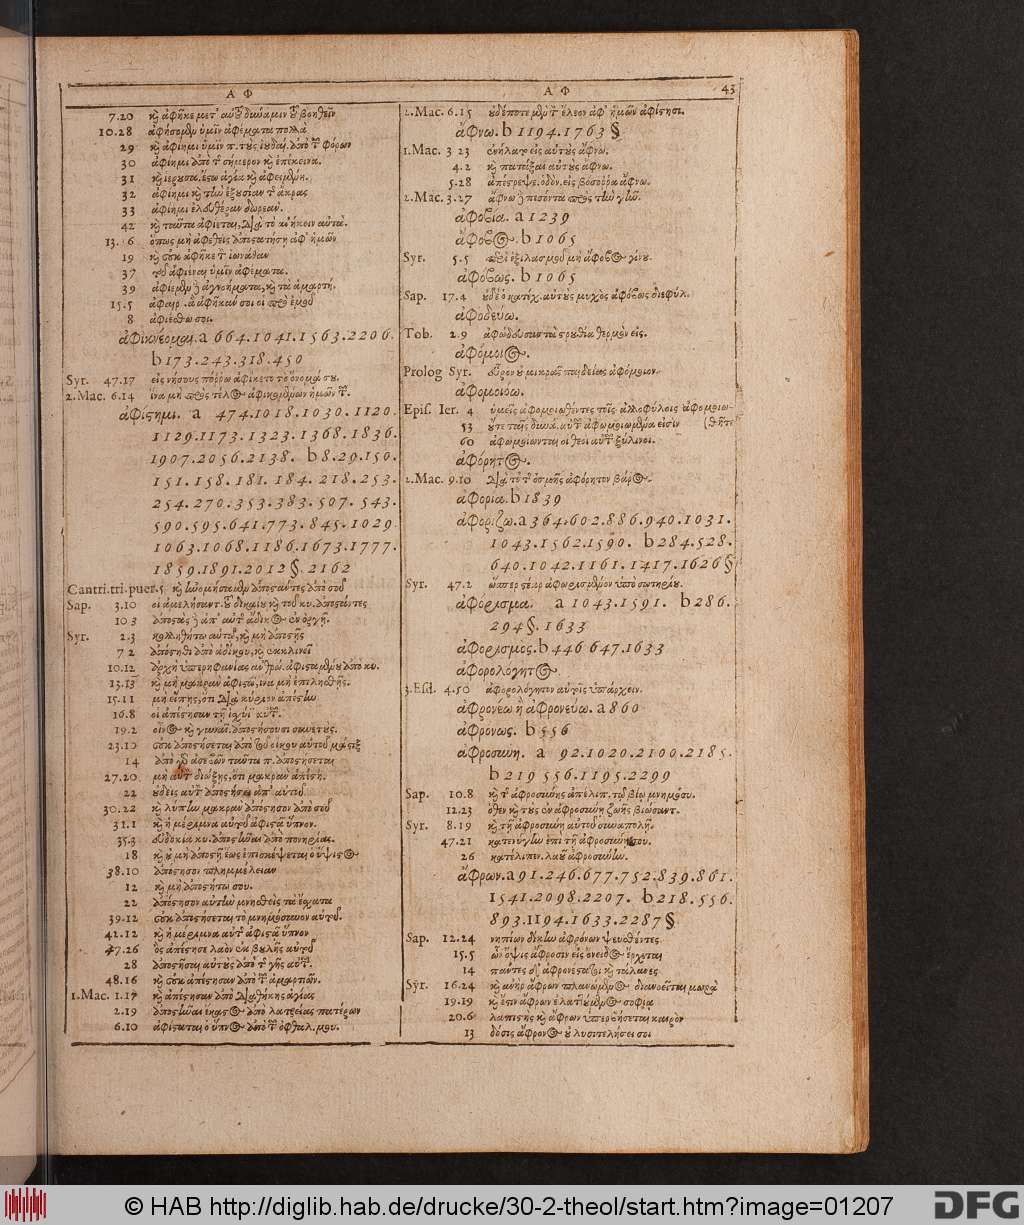 Α Φ
7.20 καὶ ἀφῆκε μετ' αὐτοῦ δύναμιν τοῦ βοηθεῖν
10.28 ἀφήσομεν ὑμῖν ἀφέματα πολλὰ
29 καὶ ἀφίημι ὑμῖν π. τοὺς ἰουδαί. ἀπὸ τῶν φόρων
30 ἀφίημι ἀπὸ τῆς σήμερον καὶ ἐπέκεινα.
31 καὶ ἱερουσα. ἔστω ἁγία καὶ ἀφειμένη.
32 ἀφίημι καὶ τὴν ἐξουσίαν τῆς ἄκρας
33 ἀφίημι ἐλευθέραν δωρεάν.
42 καὶ ταῦτα ἀφίεται, διὰ τὸ
13. 6 ὅπως μὴ ἀφεθεὶς ἀποστατήσῃ ἀφ' ἡμῶν
19 καὶ οὐκ ἀφῆκε τὸν ἰωνάθαν
37 τοῦ ἀφιέναι ὑμῖν ἀφέματα.
39 ἀφίεμεν δὲ ἀγνοήματα, καὶ τὰ ἁμαρτή.
15.5 ἀφῆκάν σοι οἱ πρὸ ἐμοῦ
8 ἀφιέσθω σοι.
ἀφικνέομαι. a 664.1041.1563.2206.
b 173.243.318.450
Syr. 47.17 εἰς νήσους πόῤῥω ἀφίκετο τὸ ὄνομά σου.
2.Mac. 6.14 ἵνα μὴ πρὸς τέλος ἀφικομένων ἡμῶν τῶν.
ἀφίστημι. a 474.1018.1030.1120.
1129.1173.1323.1368.1836.
1907.2056.2138. b 8.29.150.
151.158.181.184.218.253.
254.270.353.383.507.543.
590.595.641.773.845.1029
1063.1068.1186.1673.1777.
1859.1891.2012 §. 2162
Cantri.tri.puer.5 καὶ ἠνομήσαμεν ἀποστάντες ἀπὸ σοῦ
Sap. 3.10 οἱ ἀμελήσαντ. τοῦ δικαίου καὶ τοῦ κυ. ἀποστάντες
10 3 ἀποστὰς δὲ ἀπ' αὐτῆς ἄδικος ἐν ὀργῇ.
Syr. 2.3 κολλήθητι αὐτῷ, καὶ μὴ ἀποστῇς
7 2 ἀπόστηθι ἀπὸ ἀδίκου, καὶ ἐκκλινεῖ
10.12 ἀρχὴ ὑπερηφανίας ἀνθρώ. ἀφισταμένου ἀπὸ κυ.
13.13 καὶ μὴ μακρὰν ἀφιστῶ, ἵνα μὴ ἐπιλησθῇς.
15.11 μὴ εἴπῃς, ὅτι διὰ κύριον ἀπέστην
16.8 οἱ ἀπέστησαν τῇ ἰσχύϊ αὐτῶν.
19.2 οἶνος καὶ γυναῖκ. ἀποστήσουσι συνετούς.
23.10 οὐκ ἀποστήσεται ἀπὸ τοῦ οἴκου αὐτοῦ μάστιξ
14 ἀπὸ γὰρ ἀσεβῶν ταῦτα π. ἀποστήσεται
27.20 μὴ αὐτὸν διώξῃς, ὅτι μακρὰν ἀπέστη.
22 οὐδεὶς αὐτὸν ἀποστήσει ἀπ' αὐτοῦ
30.22 καὶ λύπην μακρὰν ἀπόστησον ἀπὸ σοῦ
31.1 καὶ ἡ μέριμνα αὐτοῦ ἀφιστᾷ ὕπνον.
35.3 εὐδοκία κυ. ἀποστῆναι ἀπὸ πονηρίας.
18 καὶ οὐ μὴ ἀποστῇ ἕως ἐπισκέψεται ὁ ὕψιστος
38.10 ἀπόστησον πλημμέλειαν
12 καὶ μὴ ἀποστήτω σου.
22 ἀπόστησον αὐτὴν μνησθεὶς τὰ ἔσχατα
39.12 οὐκ ἀποστήσεται τὸ μνημόσυνον αὐτοῦ.
42.12 καὶ ἡ μέριμνα αὐτῆς ἀφιστᾷ ὕπνον
47.26 ὃς ἀπέστησε λαὸν ἐκ βουλῆς αὐτοῦ
28 ἀποστῆσαι αὐτοὺς ἀπὸ τῆς γῆς αὐτῶν.
48.16 καὶ οὐκ ἀπέστησαν ἀπὸ τῶν ἁμαρτιῶν.
1.Mac. 1.17 καὶ ἀπέστησαν ἀπὸ διαθήκης ἁγίας
2.19 ἀποστῆναι ἕκαστος ἀπὸ λατρείας πατέρων
6.10 ἀφίσταται ὁ ὕπνος ἀπὸ τῶν ὀφθαλ. μου.
Α Φ 43
2.Mac. 6.15 οὐδέποτε μὲν τὸν ἔλεον ἀφ' ἡμῶν ἀφίστησι.
ἄφνω. b 1194.1763 §
1.Mac. 3 23 ἐνήλατο εἰς αὐτοὺς ἄφνω.
4.2 καὶ πατάξαι αὐτοὺς ἄφνω.
5.28 ἀπέστρεψε. ὁδὸν. εἰς βόσοῤῥα ἄφνω.
2.Mac. 3.27 ἄφνω δὲ πεσόντα πρὸς τὴν γῆν.
ἀφοβία. a 1239
ἄφοβος. b 1065
Syr. 5.5 περὶ ἐξιλασμοῦ μὴ ἄφοβος γίνου.
ἀφόβως. b 1065
Sap. 17.4 οὐδὲ ὁ κατέχ. αὐτοὺς μυχὸς ἀφόβως διεφύλ.
ἀφοδεύω.
Tob. 2.9 ἀφώδευσαν τὰ στρουθία θερμὸν εἰς.
ἀφόμοιος.
Prolog Syr. εὗρον οὐ μικρᾶς παιδείας ἀφόμοιον.
ἀφομοιόω.
Epist. Ier. 4 ὑμεῖς ἀφομοιωθέντες τοῖς ἀλλοφύλοις ἀφομοιω-
53 οὔτε ταῖς δικαί. αὐτῶν ἀφωμοιωμένα εἰσὶν (θῆτε
60 ἀφωμοίωνται οἱ θεοὶ αὐτῶν ξύλινοι.
ἀφόρητος.
2.Mac. 9.10 διὰ τὸ τῆς ὀσμῆς ἀφόρητον βάρος.
ἀφορία. b 1839
ἀφορίζω. a 364.602.886.940.1031.
1043.1562.1590. b 284.528.
640.1042.1161.1417.1626 §
Syr. 47.2 ὥσπερ στέαρ ἀφωρισμένον ἀπὸ σωτηρίου.
ἀφόρισμα. a 1043.1591. b 286.
294 §. 1633
ἀφορισμος. b 446 647.1633
ἀφορολόγητος.
3.Esd. 4.50 ἀφορολόγητον αὐτοῖς ὑπάρχειν.
ἀφρονέω ἢ ἀφρονεύω. a 860
ἀφρόνως. b 556
ἀφροσύνη. a 92.1020.2100.2185.
b 219 556.1195.2299
Sap. 10.8 καὶ τῆς ἀφροσύνης ἀπέλιπ. τῷ βίῳ μνημόσυ.
12.23 ὅθεν καὶ τοὺς ἐν ἀφροσύνῃ ζωῆς βιώσαντ.
Syr. 8.19 καὶ τῇ ἀφροσύνῃ αὐτοῦ συναπολῇ.
47.21 κατενύγην ἐπὶ τῇ ἀφροσύνῃ σου.
26 κατέλιπεν. λαοῦ ἀφροσύνην.
ἄφρων. a 91.246.677.752.839.861.
1541.2098.2207. b 218.556.
893.1194.1633.2287 §
Sap. 12.24 νηπίων δίκην ἀφρόνων ψευσθέντες
15.5 ὧν ὄψις ἄφροσιν εἰς ὄνειδος ἔρχεται
14 πάντες δὲ ἀφρονέστατοι καὶ τάλανες
Syr. 16.24 καὶ ἀνὴρ ἄφρων πλανώμενος διανοεῖται μωρά
19.19 καὶ ἔστιν ἄφρων ἐλαττούμενος σοφίᾳ
20.6 λαπιστὴς καὶ ἄφρων ὑπερβήσεται καιρόν
13 δόσις ἄφρονος οὐ λυσιτελήσει σοι
© HAB http://diglib.hab.de/drucke/30-2-theol/start.htm?image=01207
DFG